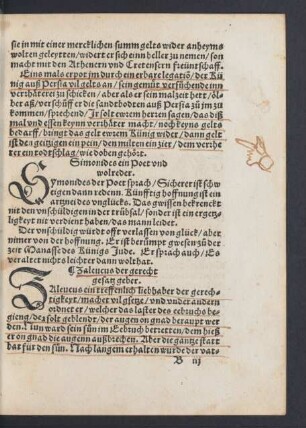 sie in mit einer mercklichen summ gelts wider anheyms
wolten geleytten / widert er sich inn heller zu nemen / son
macht mit den Athenern vnd Cretensern freüntschafft.
Eins mals erpot im durch ein erbare legation / der Kü
nig auß Persia vil gelts an / sein gemüt versuchende inn
verthätter zu schicken / aber als er sein malzeit hett / öl
ber aß / verschüff er die sandtbotten auß Persia zu im zu
kommen / sprechend / Ir solt ewern herren sagen / das diß
mal vnd essen keynn verthätter macht / noch keyns gelts
bedarff / bringt das gelt ewern Künig wider / dann gelt
ist des geitzigen ein pein / den milten ein zier / dem verthe
ter ein todtschlag / wie doben gehört.
Simonides ein Poet vnd
wolreder.
Symonides der Poet sprach / Sicherer ist schw
eigen dann redenn. Künfftig hoffnung ist ein
artznei des vnglücks. Das gwissen bekrenckt
nit den vnschüldigen in der trübsal / sonder ist ein ergetz
ligkeit nie verdient haben / das man leidet.
Der vnschuldig würdt offt verlassen von glück / aber
nimmer von der hoffnung. Er ist berümpt gwesen zu der
zeit Manasse des Künigs Jude. Er sprach auch / Es
veraltet nichts leichter dann wolthat.
Zaleucus der gerecht
gesatz geber.
Zaleucus ein treffenlich liebhaber der gerech-
tigkeyt / machet vil gsetze / vnd vnder andern
ordnet er / welcher das laster des eebruchs be-
gieng / der solt geblendt / der augen on gnad beraupt wer
den. Nun ward sein sün im Eebruch betretten / dem hieß
er on gnad die augenn außstechen. Aber die gantze statt
bat für den sün. Nach langem erhalten wurde der vat-
B iij